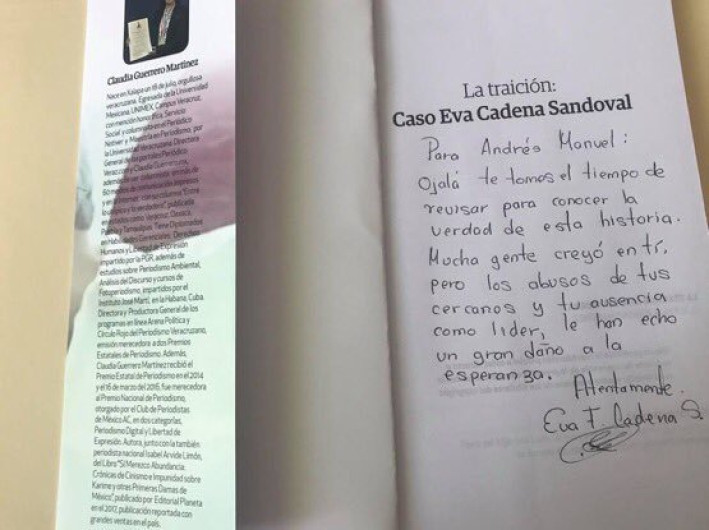 Claudia Guerrero Martínez
Nace en Xalapa un 18 de julio, orgullosa
veracruzana. Egresada de la Universidad
Mexicana, UNIMEX, Campus Veracruz,
con mención honorífica, Servicio
Social y columnista en el Periódico
Notiver y Maestría en Periodismo, por
la Universidad Veracruzana. Directora
General de los portales Periódico
Veraz.com y Claudia Guerrero.mx,
además de ser columnista en más de
60 medios de comunicación impresos
y en internet con su columna "Entre
lo utópico y lo verdadero", publicada
en estados como Veracruz, Oaxaca,
Puebla y Tamaulipas. Tiene Diplomados
en Habilidades Gerenciales, Derechos
Humanos y Libertad de Expresión
impartido por la PGR, además de
estudios sobre Periodismo Ambiental,
Análisis del Discurso y cursos de
Fotoperiodismo, impartidos por el
Instituto José Martí, en la Habana, Cuba.
Directora y Productora General de los
programas en línea Arena Política y
Círculo Rojo del Periodismo Veracruzano,
emisión merecedora a dos Premios
Estatales de Periodismo. Además,
Claudia Guerrero Martínez recibió el
Premio Estatal de Periodismo en el 2014
y el 16 de marzo del 2016, fue merecedora
al Premio Nacional de Periodismo,
otorgado por el Club de Periodistas
de México AC, en dos categorías,
Periodismo Digital y Libertad de
Expresión. Autora, junto con la también
periodista nacional Isabel Arvide Limón,
del Libro "Sí Merezco Abundancia.
Crónicas de Cinismo e Impunidad sobre
Karime y otras Primeras Damas de
México", publicado por Editorial Planeta
en el 2017, publicación reportada con
grandes ventas en el país.
La traición:
Caso Eva Cadena Sandoval
Para Andrés Manuel:
Ojalá te tomes el tiempo de
revisar para conocer la
verdad de esta historia.
Mucha gente creyó en tí,
pero los abusos de tus
cercanos y tu ausencia
como lider, le han echo
un gran daño a la
esperanza.
Atentamente.
Eva F. Cadena S.